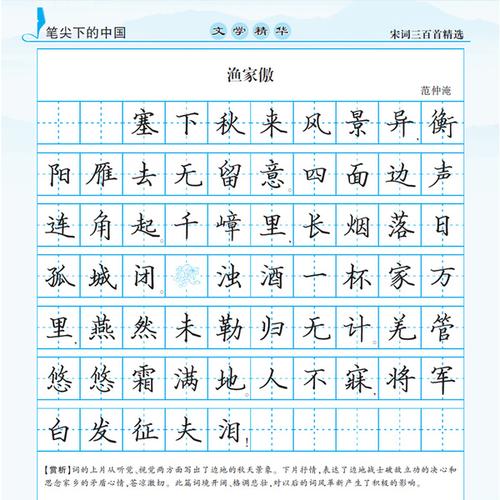 笔尖下的中国
文学精华
宋词三百首精选
渔家傲
范仲淹
塞下秋来风景异,衡
阳雁去无留意。四面边声
连角起。千嶂里,长烟落日
孤城闭。浊酒一杯家万
里,燕然未勒归无计。羌管
悠悠霜满地。人不寐,将军
白发征夫泪!
【赏析】词的上片从听觉、视觉两方面写出了边地的秋天景象。下片抒情,表达了边地战士破敌立功的决心和
思念家乡的矛盾心情,苍凉激切。此篇词境开阔、格调悲壮,对以后的词风革新产生了积极的影响。